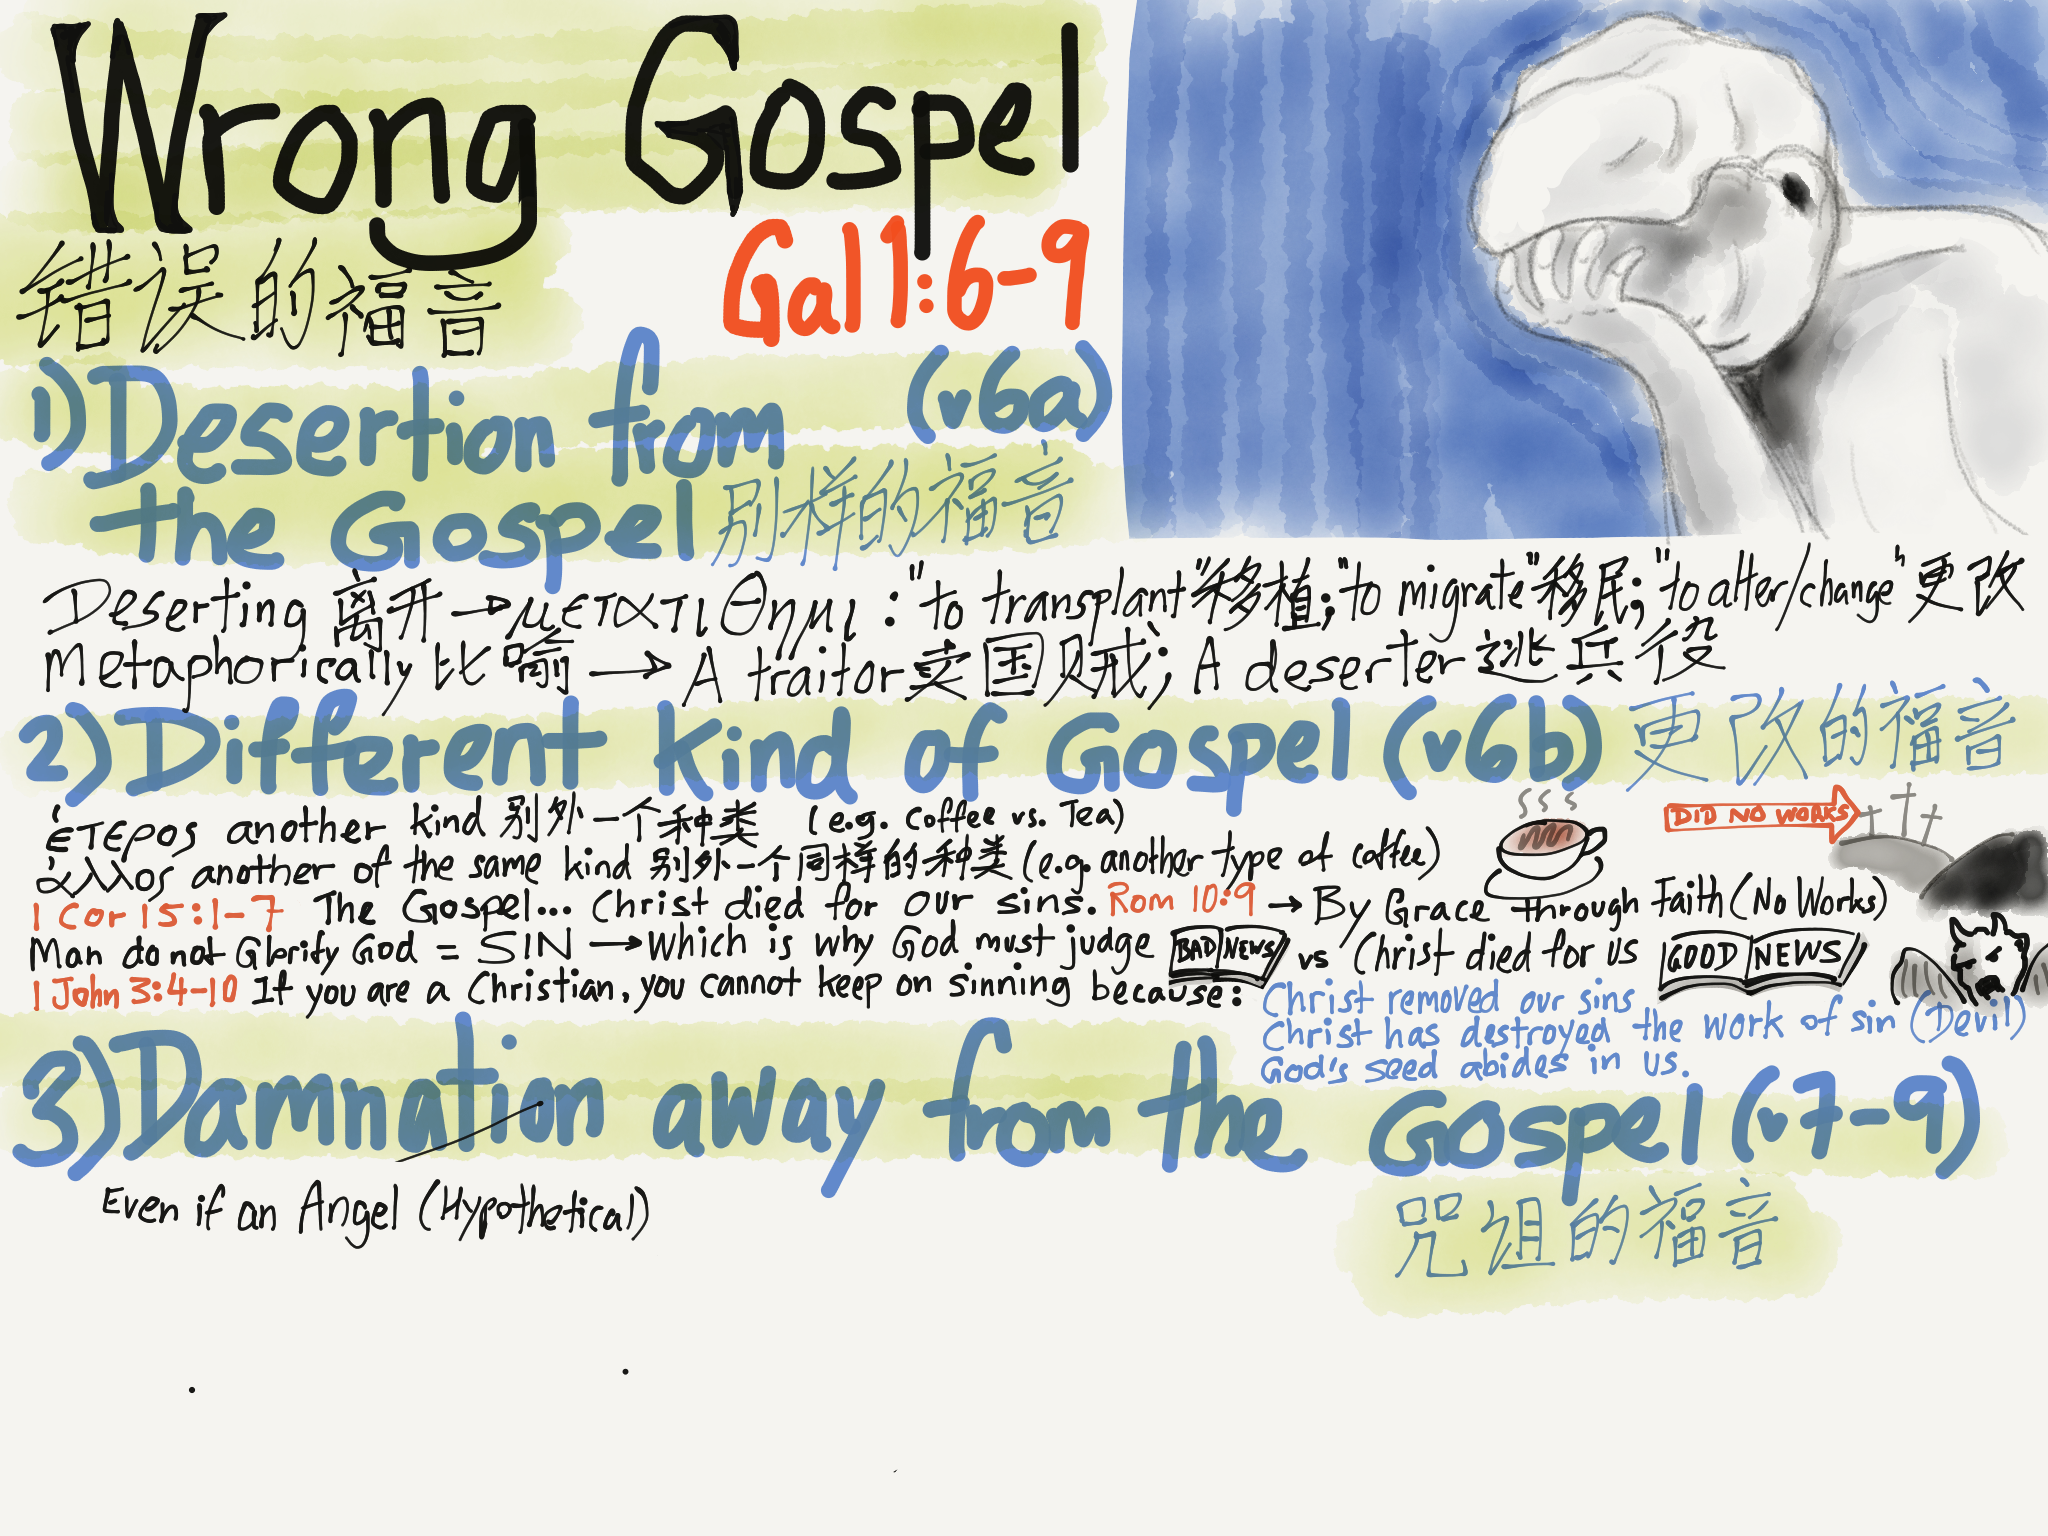 Wrong Gospel
错误的福音
Gal 1:6-9
1) Desertion from (v6a)
the Gospel 别样的福音
Deserting 离开 → μετατιθημι : "to transplant" 移植; "to migrate" 移民; "to alter/change" 更改
Metaphorically 比喻 → A traitor 卖国贼; A deserter 逃兵役
2) Different kind of Gospel (v6b) 更改的福音
ἑτερος another kind 别外一个种类 (e.g. coffee vs. Tea)
DID NO WORKS
αλλος another of the same kind 别外一个同样的种类 (e.g. another type of coffee)
1 Cor 15:1-7 The Gospel... Christ died for our sins. Rom 10:9 → By Grace through Faith (No Works)
Man do not Glorify God = SIN → Which is why God must judge BAD NEWS vs Christ died for us GOOD NEWS
1 John 3:4-10 If you are a Christian, you cannot keep on sinning because:
Christ removed our sins
Christ has destroyed the work of sin (Devil)
God's seed abides in us.
3) Damnation away from the Gospel (v7-9)
Even if an Angel (Hypothetical)
咒诅的福音